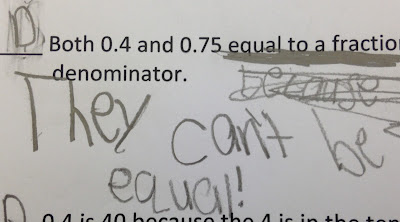 D Both 0.4 and 0.75 equal to a fractio
denominator.
because
They can't be
equal!
0.4 is 40 because the 4 is in the ten